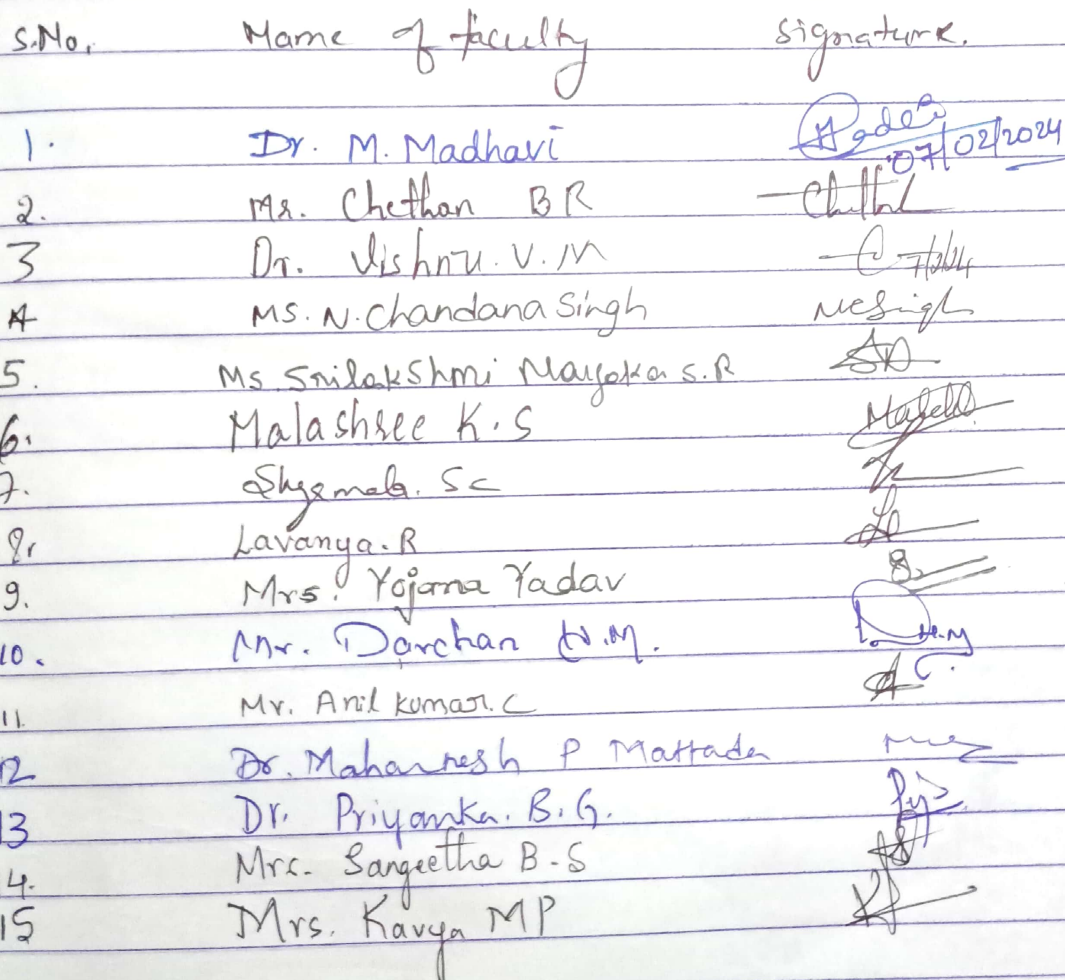 S.No. Name of faculty Signature.
1. Dr. M. Madhavi 07/02/2024
2. Mr. Chethan B R
3 Dr. Vishnu. V. M 7/2/24
4 Ms. N. Chandana Singh NCSingh
5. Ms. Srilakshmi S.R
6. Malashree K.S
7. Shyamala. SC
8. Lavanya. R
9. Mrs. Yojana Yadav
10. Mr. Darshan N.M.
11. Mr. Anil kumar. C
12 Dr. Mahantesh P Mattada
13 Dr. Priyanka. B.G.
14. Mrs. Sangeetha B-S
15 Mrs. Kavya MP